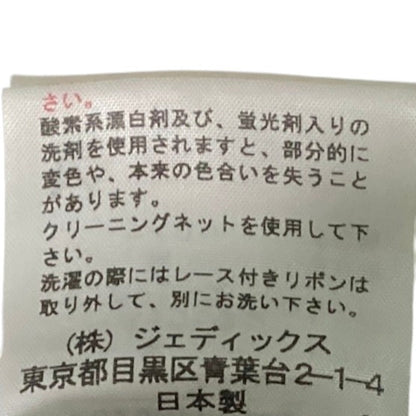 さい。
酸素系漂白剤及び、蛍光剤入りの
洗剤を使用されますと、部分的に
変色や、本来の色合いを失うこと
があります。
クリーニングネットを使用して下
さい。
洗濯の際にはレース付きリボンは
取り外して、別にお洗い下さい。
(株) ジェディックス
東京都目黒区青葉台2-1-4
日本製